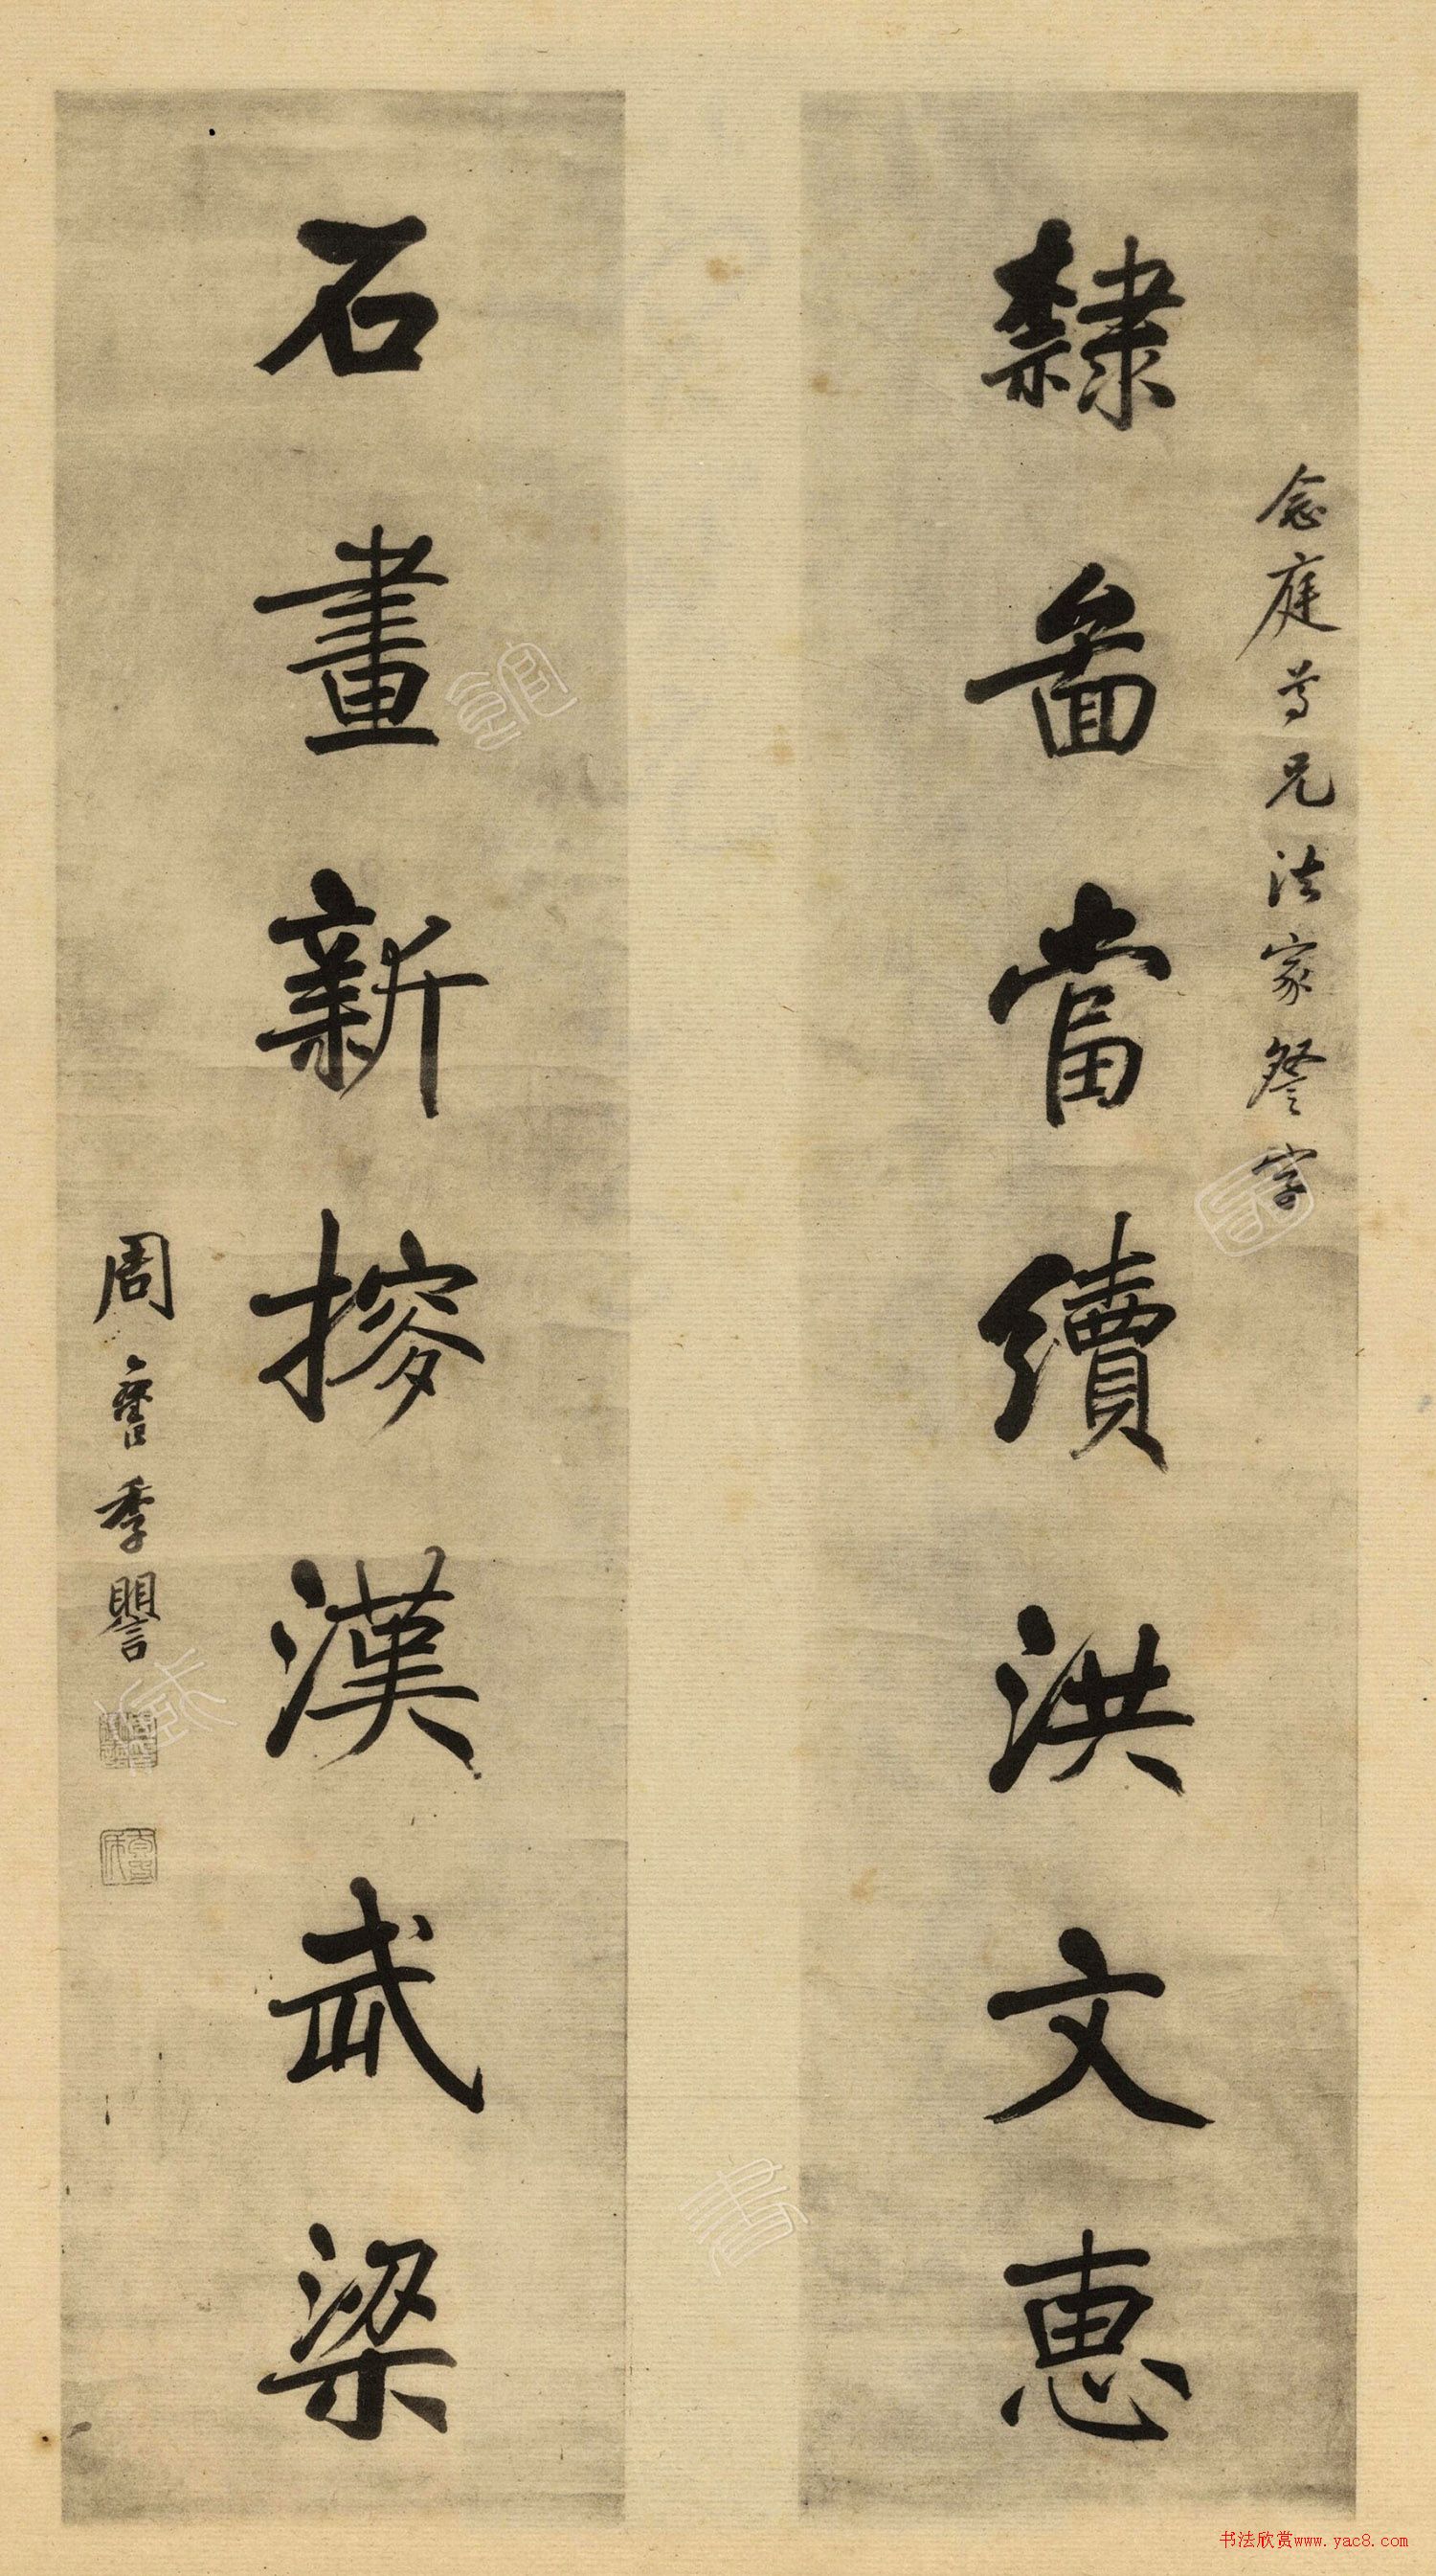 念庭尊兄法家詧字
隸啚當續洪文惠
石畫新摉漢武梁
周 季
书法欣赏www.yac8.com